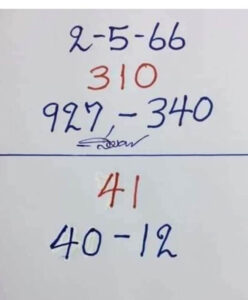 2-5-66
310
927,-340
41
40-12